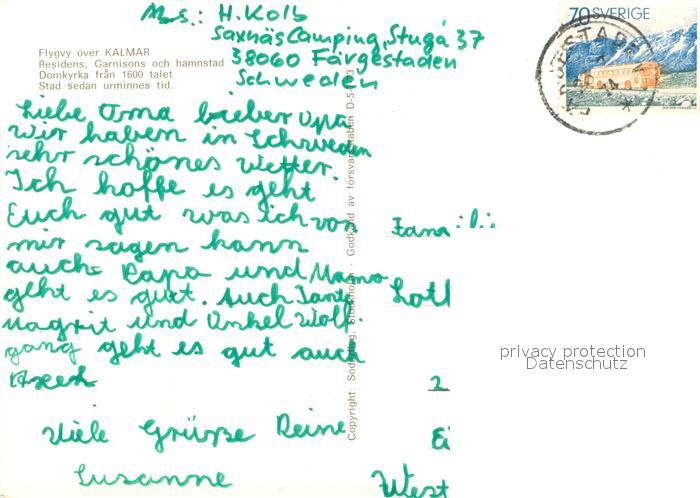 Abs.: H. Kolb
Saxnäs Camping, Stuga 37
38060 Färgestaden
Schweden
70 SVERIGE
Flygvy över KALMAR
Residens, Garnisons och hamnstad
Domkyrka från 1600 talet
Stad sedan urminnes tid.
Liebe Oma lieber Opa
Wir haben in Schweden
sehr schönes Wetter.
Ich hoffe es geht
Euch gut was ich von
mir sagen kann
auch Papa und Mama
geht es gut. Auch Tante
Magrit und Onkel Wolf-
gang geht es gut auch
Viele Grüsse Deine
Susanne
Copyright: Stockholm · Godkänd av försvarsstaben
Fami
Lotl
2
Ei
West
privacy protection
Datenschutz